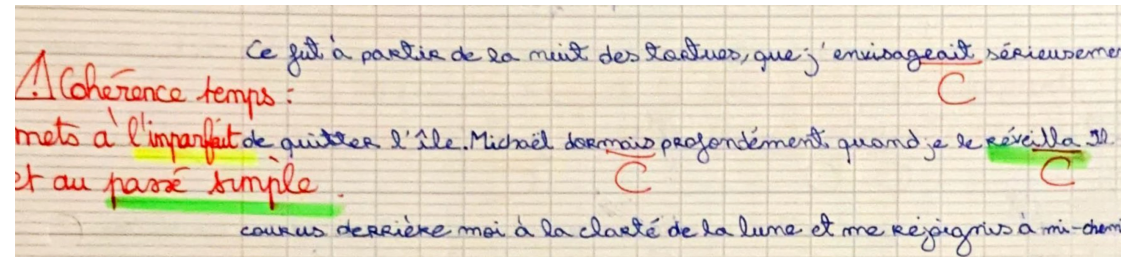 Ce fut à partir de la nuit des tortues, que j'envisageait sérieuseme
C
⚠ Cohérence temps :
mets à l'imparfait
et au passé simple.
de quitter l'île. Michaël dormais profondément quand je le réveilla Il
C C
courus derrière moi à la clarté de la lune et me rejoignis à mi-chemi